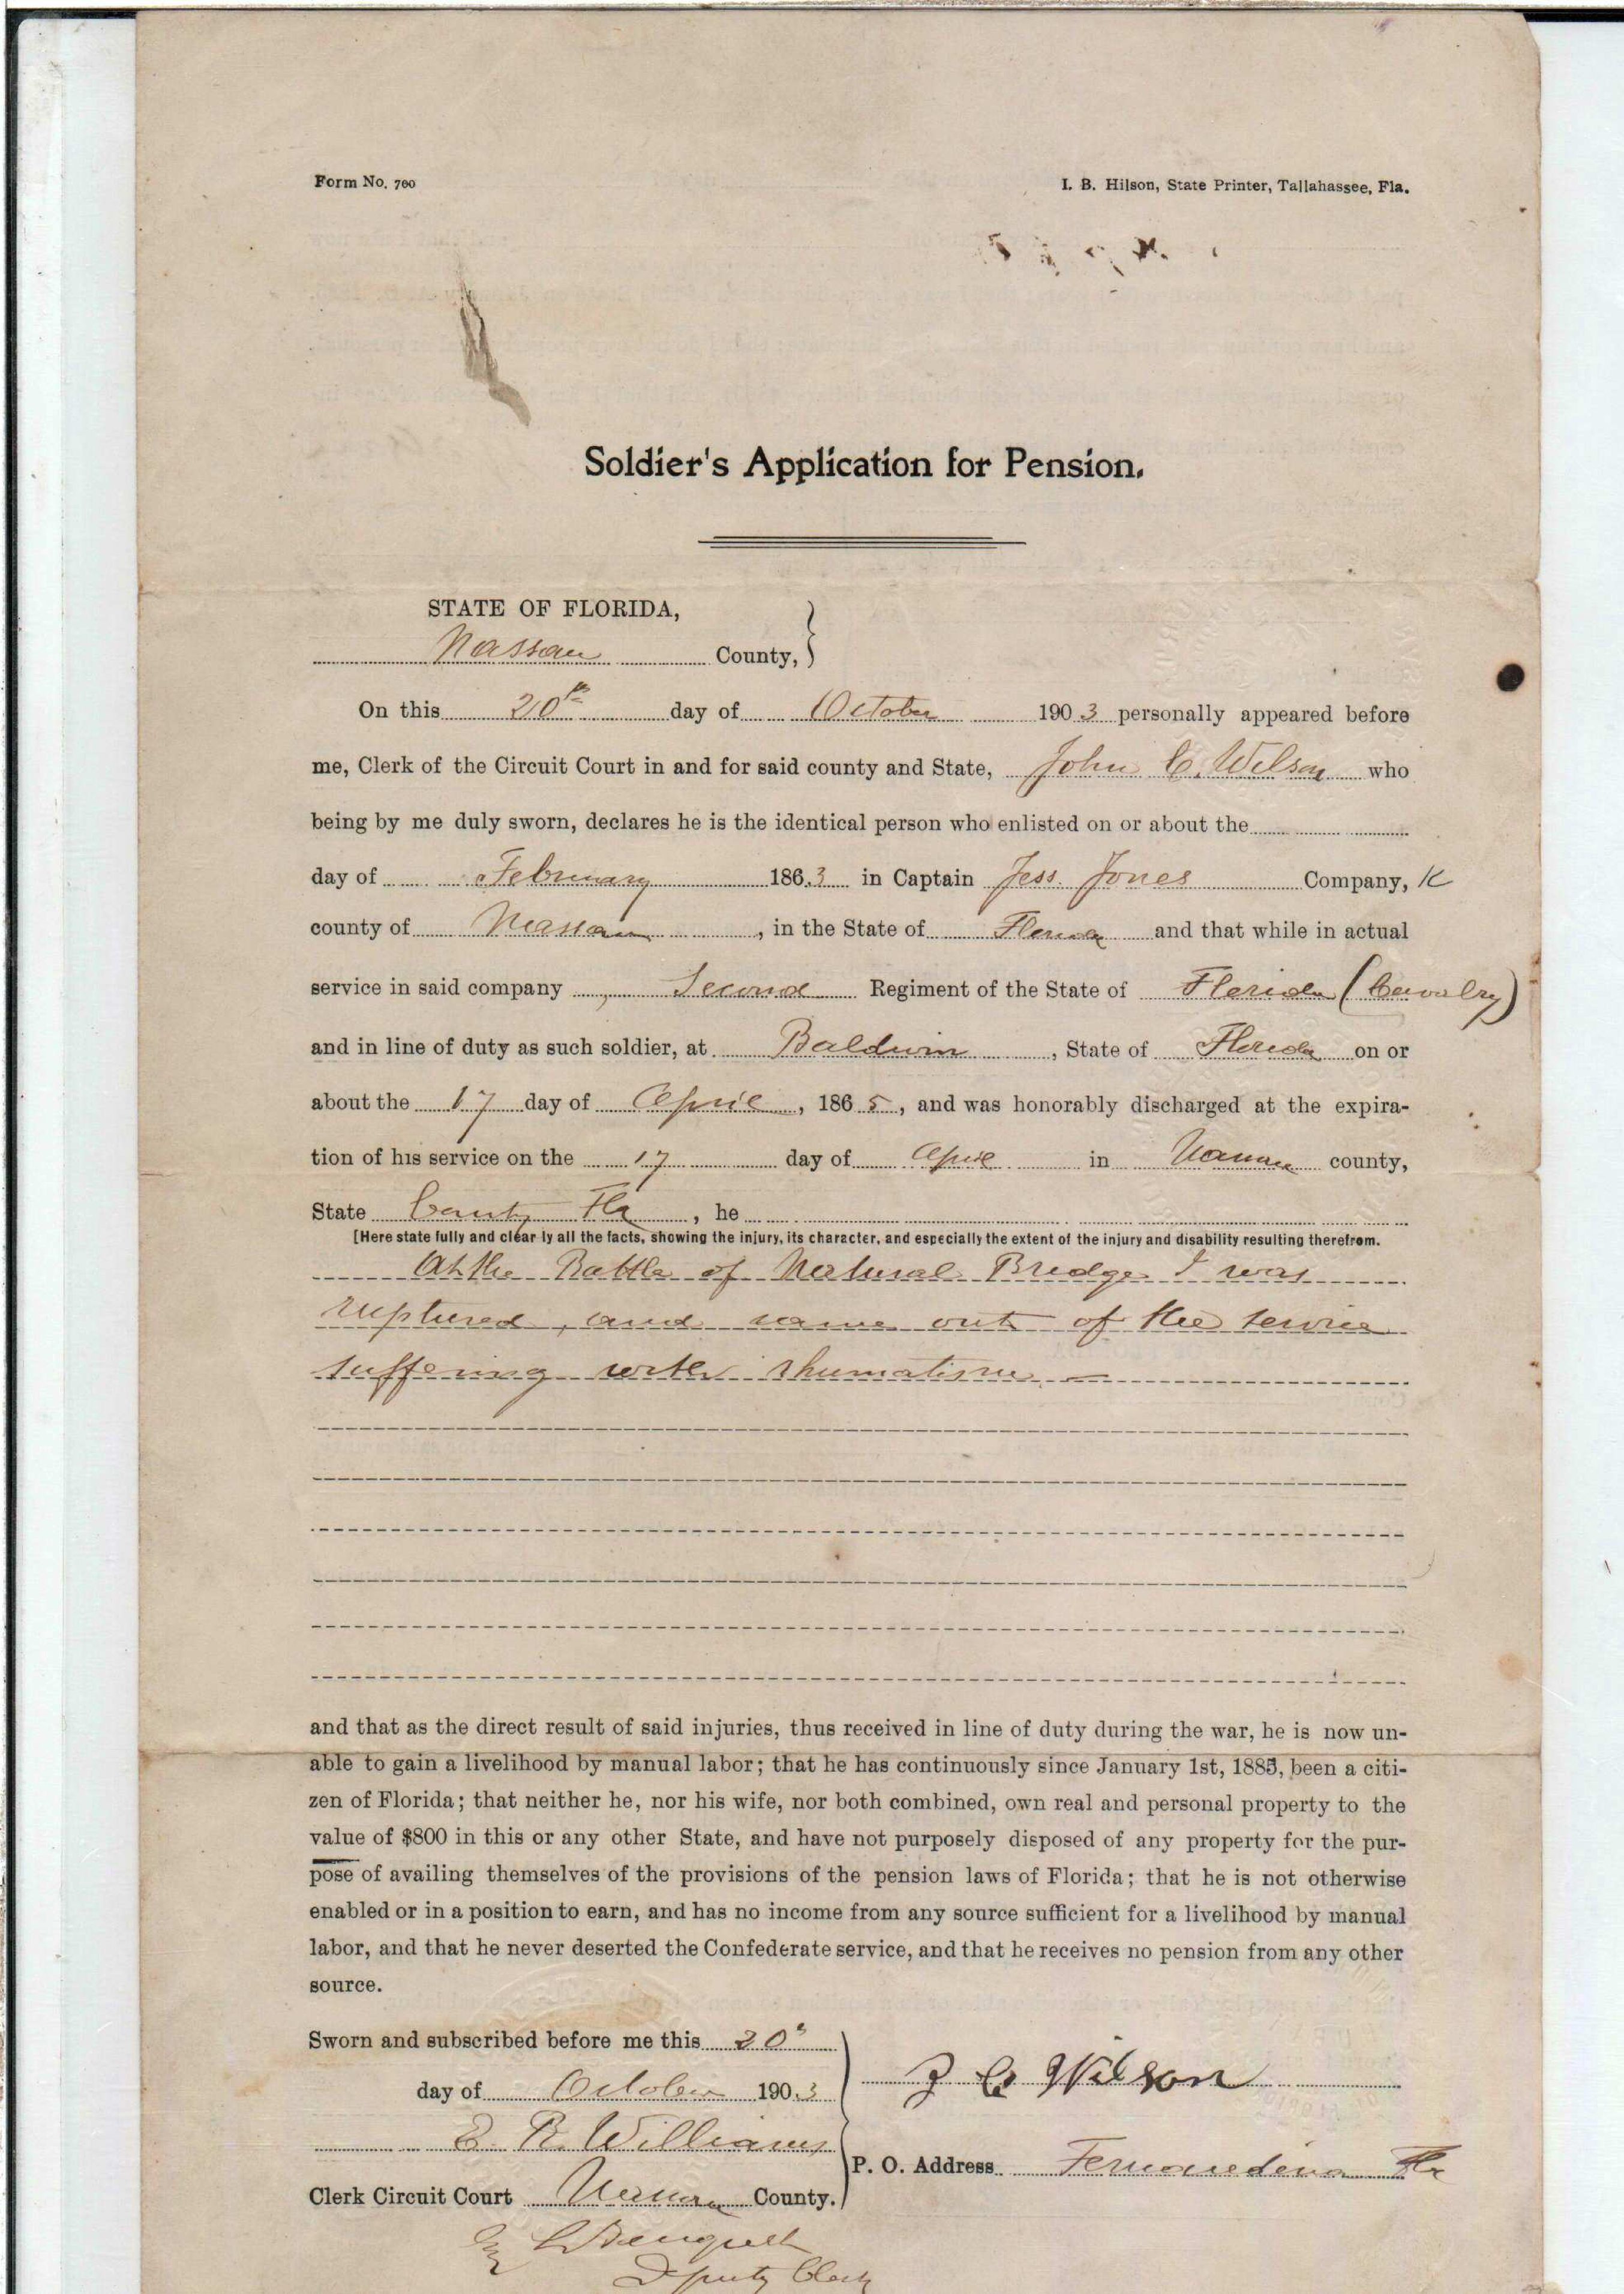 Form No. 700
I. B. Hilson, State Printer, Tallahassee, Fla.
Soldier's Application for Pension.
STATE OF FLORIDA,
Nassau County,
On this 20th day of October 1903 personally appeared before
me, Clerk of the Circuit Court in and for said county and State, John C. Wilson who
being by me duly sworn, declares he is the identical person who enlisted on or about the
day of February 1863 in Captain Jess. Jones Company, K
county of Nassau, in the State of Florida and that while in actual
service in said company, Second Regiment of the State of Florida (Cavalry)
and in line of duty as such soldier, at Baldwin, State of Florida on or
about the 17 day of April, 1865, and was honorably discharged at the expira-
tion of his service on the 17 day of April in Nassau county,
State County Fla, he
[Here state fully and clearly all the facts, showing the injury, its character, and especially the extent of the injury and disability resulting therefrom.
At the Battle of Natural Bridge I was
ruptured, and came out of the service
suffering with rhumatism
and that as the direct result of said injuries, thus received in line of duty during the war, he is now un-
able to gain a livelihood by manual labor; that he has continuously since January 1st, 1885, been a citi-
zen of Florida; that neither he, nor his wife, nor both combined, own real and personal property to the
value of $800 in this or any other State, and have not purposely disposed of any property for the pur-
pose of availing themselves of the provisions of the pension laws of Florida; that he is not otherwise
enabled or in a position to earn, and has no income from any source sufficient for a livelihood by manual
labor, and that he never deserted the Confederate service, and that he receives no pension from any other
source.
Sworn and subscribed before me this 20"
day of October 1903
J C Wilson
R. Williams
P. O. Address Fernandina Fla
Clerk Circuit Court Nassau County.
Deputy Clerk